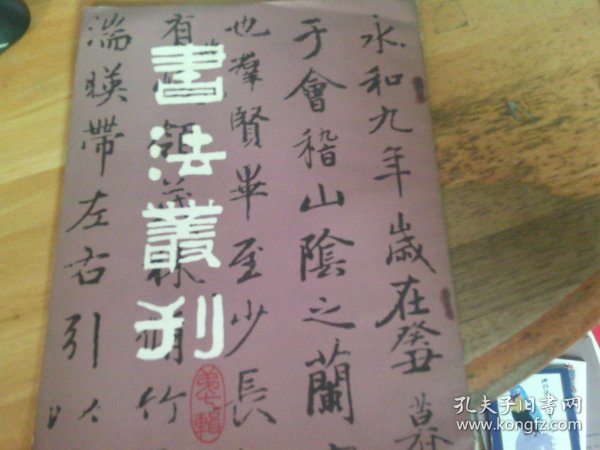 書法叢刊
第七輯
永和九年歲在癸丑暮春
于會稽山陰之蘭
也羣賢畢至少長
有
領茂林
竹
湍暎帶左右引以
孔夫子旧书网
www.kongfz.com